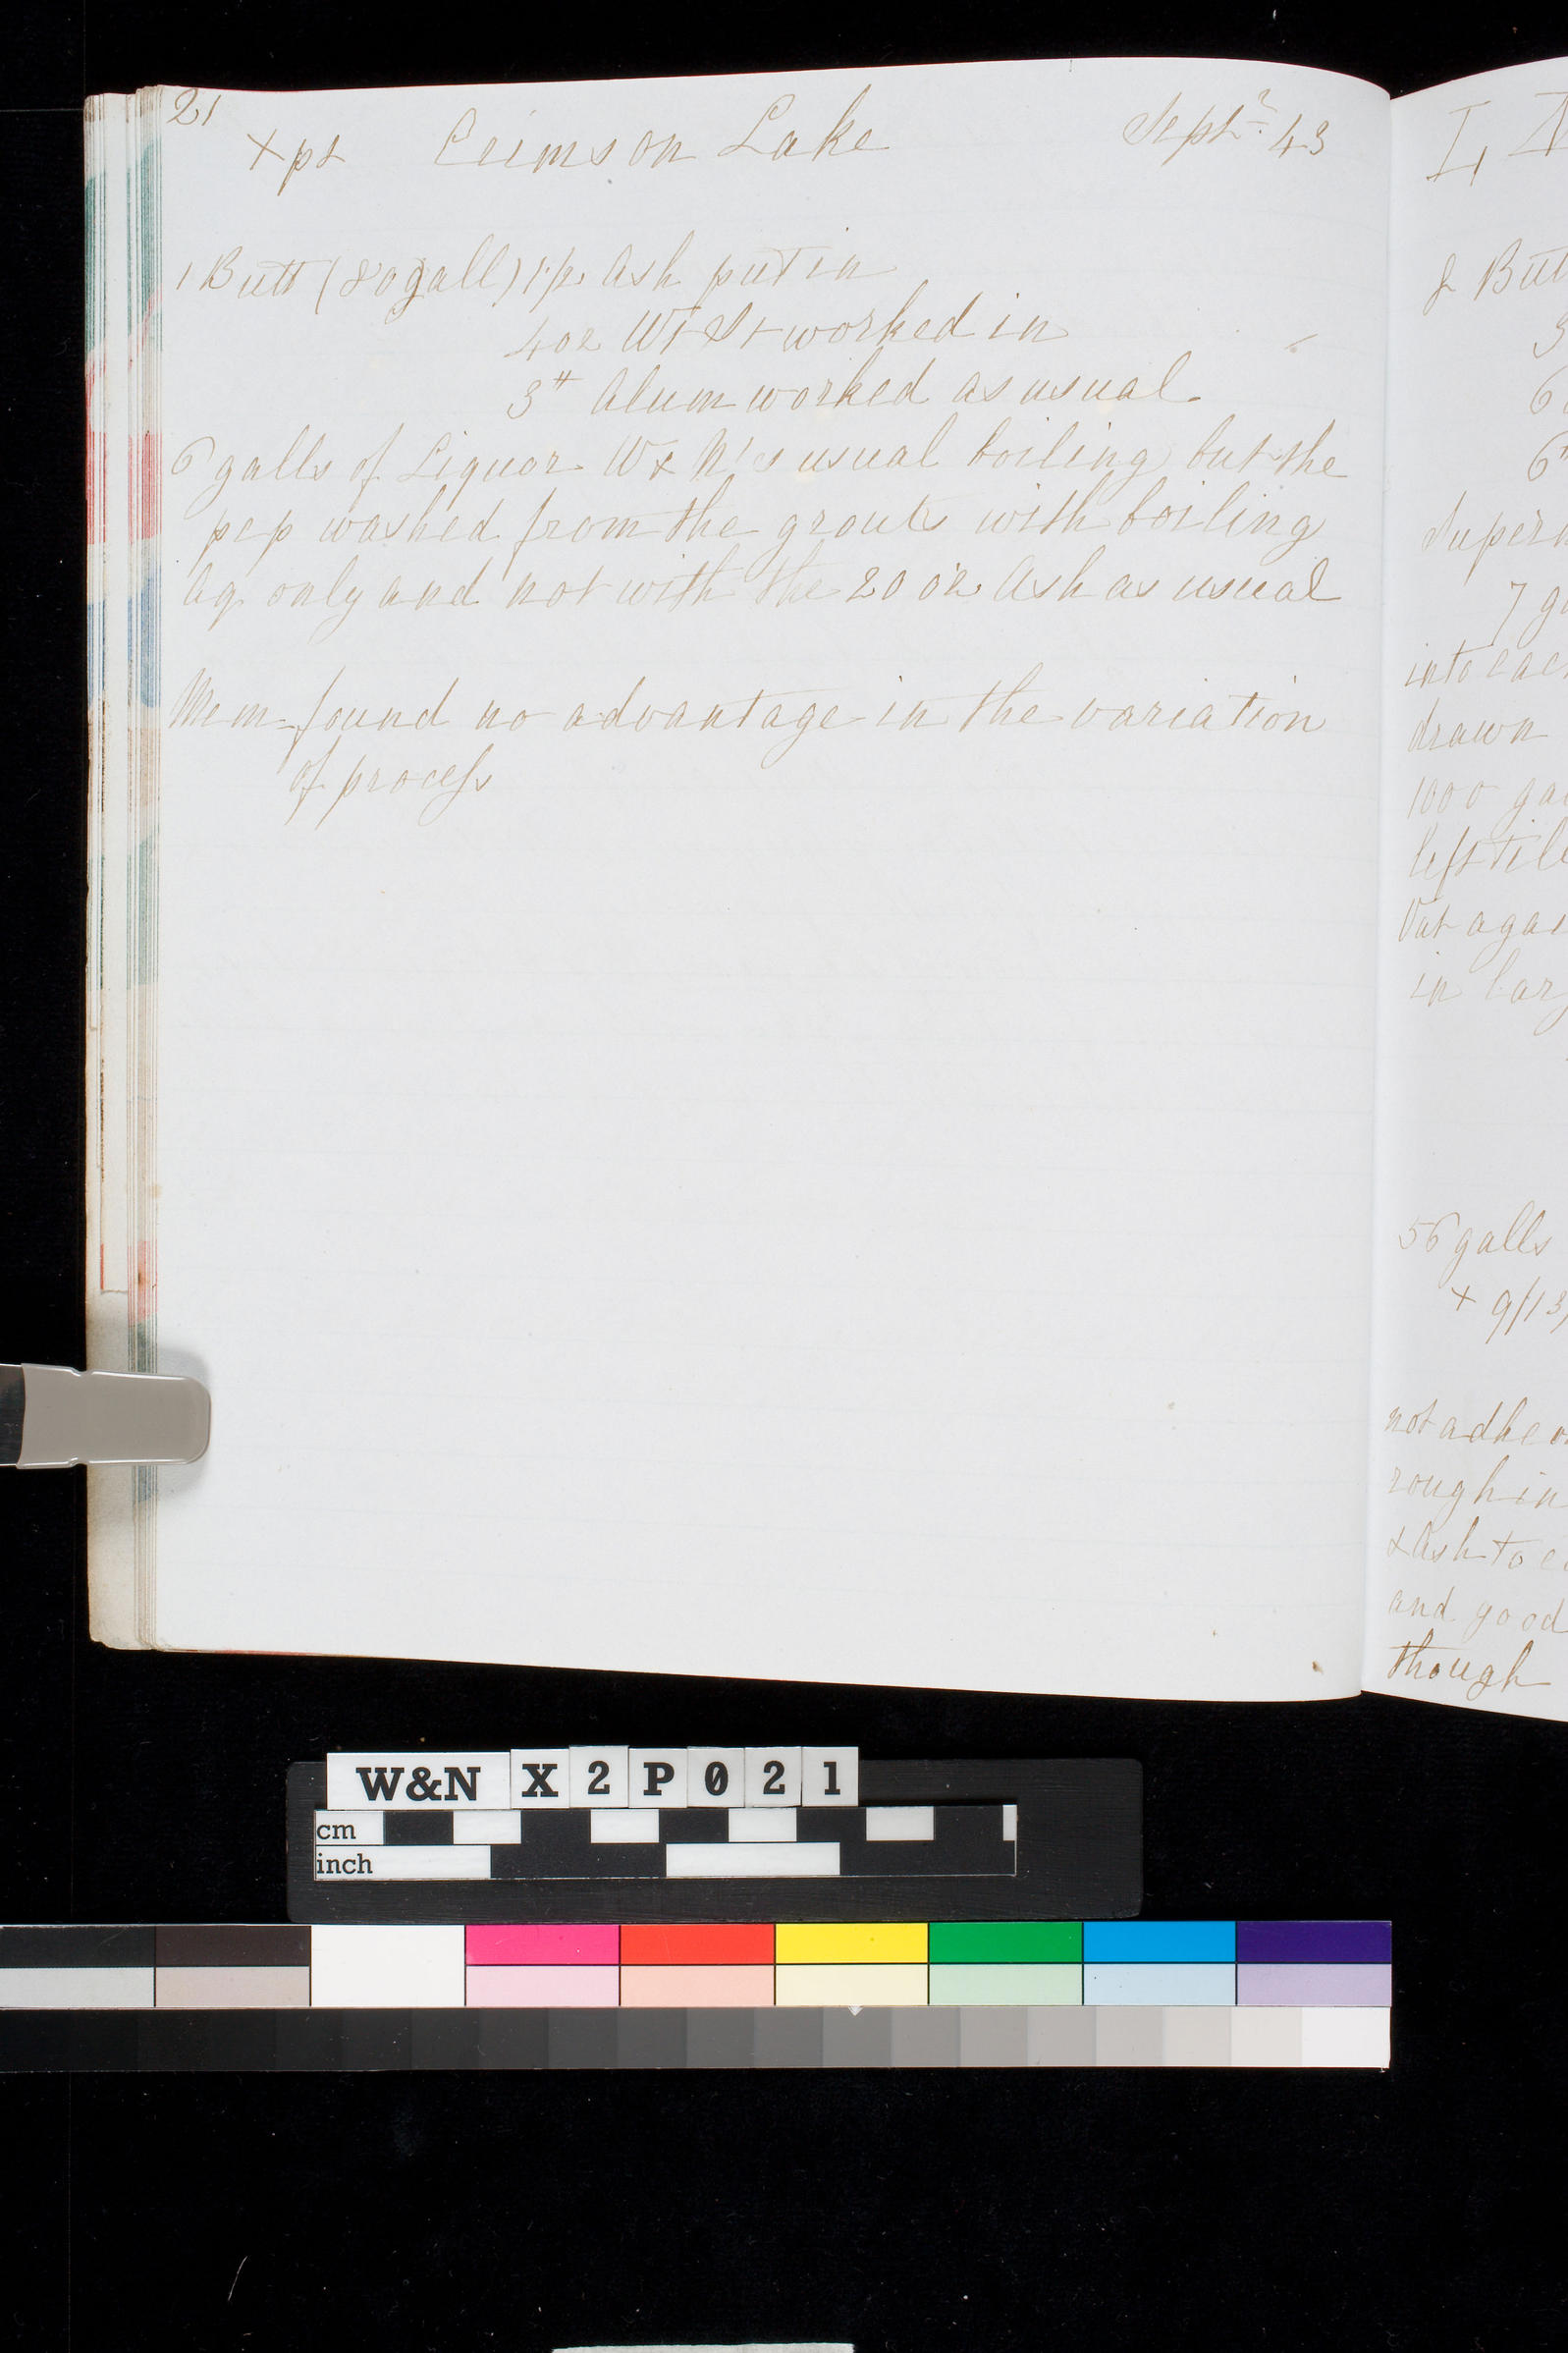 21
+pt Crimson Lake Septr 43
1 Butt (80 gall) 1 p. Ash put in
4 oz Wt St worked in
3# Alum worked as usual
6 galls of Liquor W & N's usual boiling but the
pep washed from the grouts with boiling
Aq only and not with the 20 oz Ash as usual
Mem found no advantage in the variation
of process
&
Butt
3
6
6"
7 ga
into eac
drawn
1000 gal
left till
Vat agai
in larg
56 galls
+ 9/13/
not adhe
rough in
& Ash to
and good
though
W&N X2P021
cm
inch